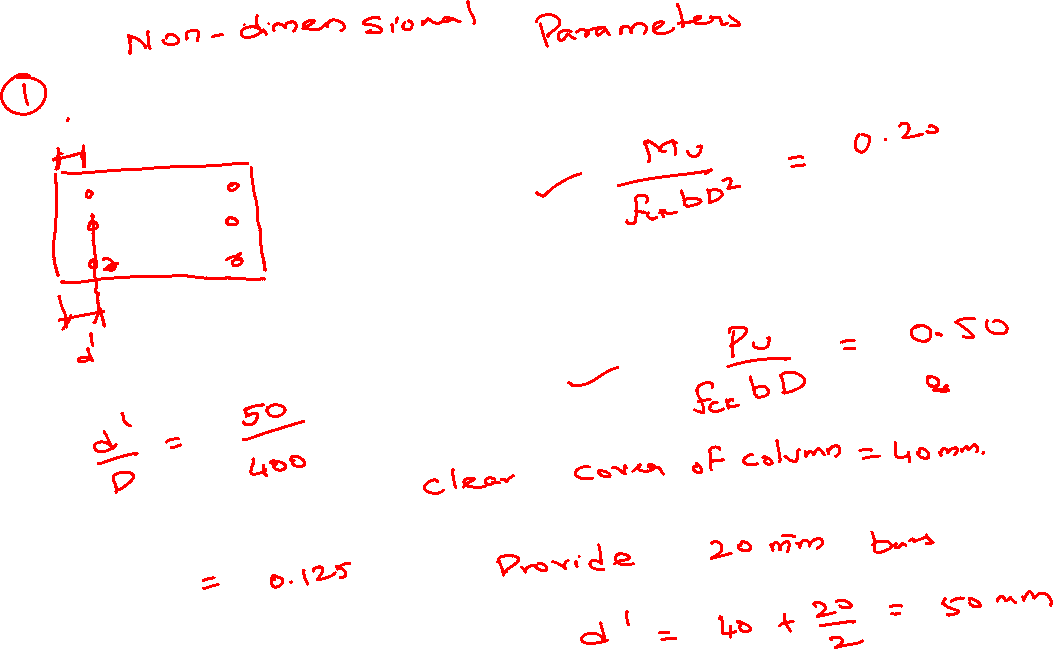 Non-dimensional Parameters
①
Mu / fck bD² = 0.20
d'
Pu / fck bD = 0.50
d' / D = 50 / 400
clear cover of column = 40 mm.
= 0.125
Provide 20 mm bars
d' = 40 + 20/2 = 50 mm